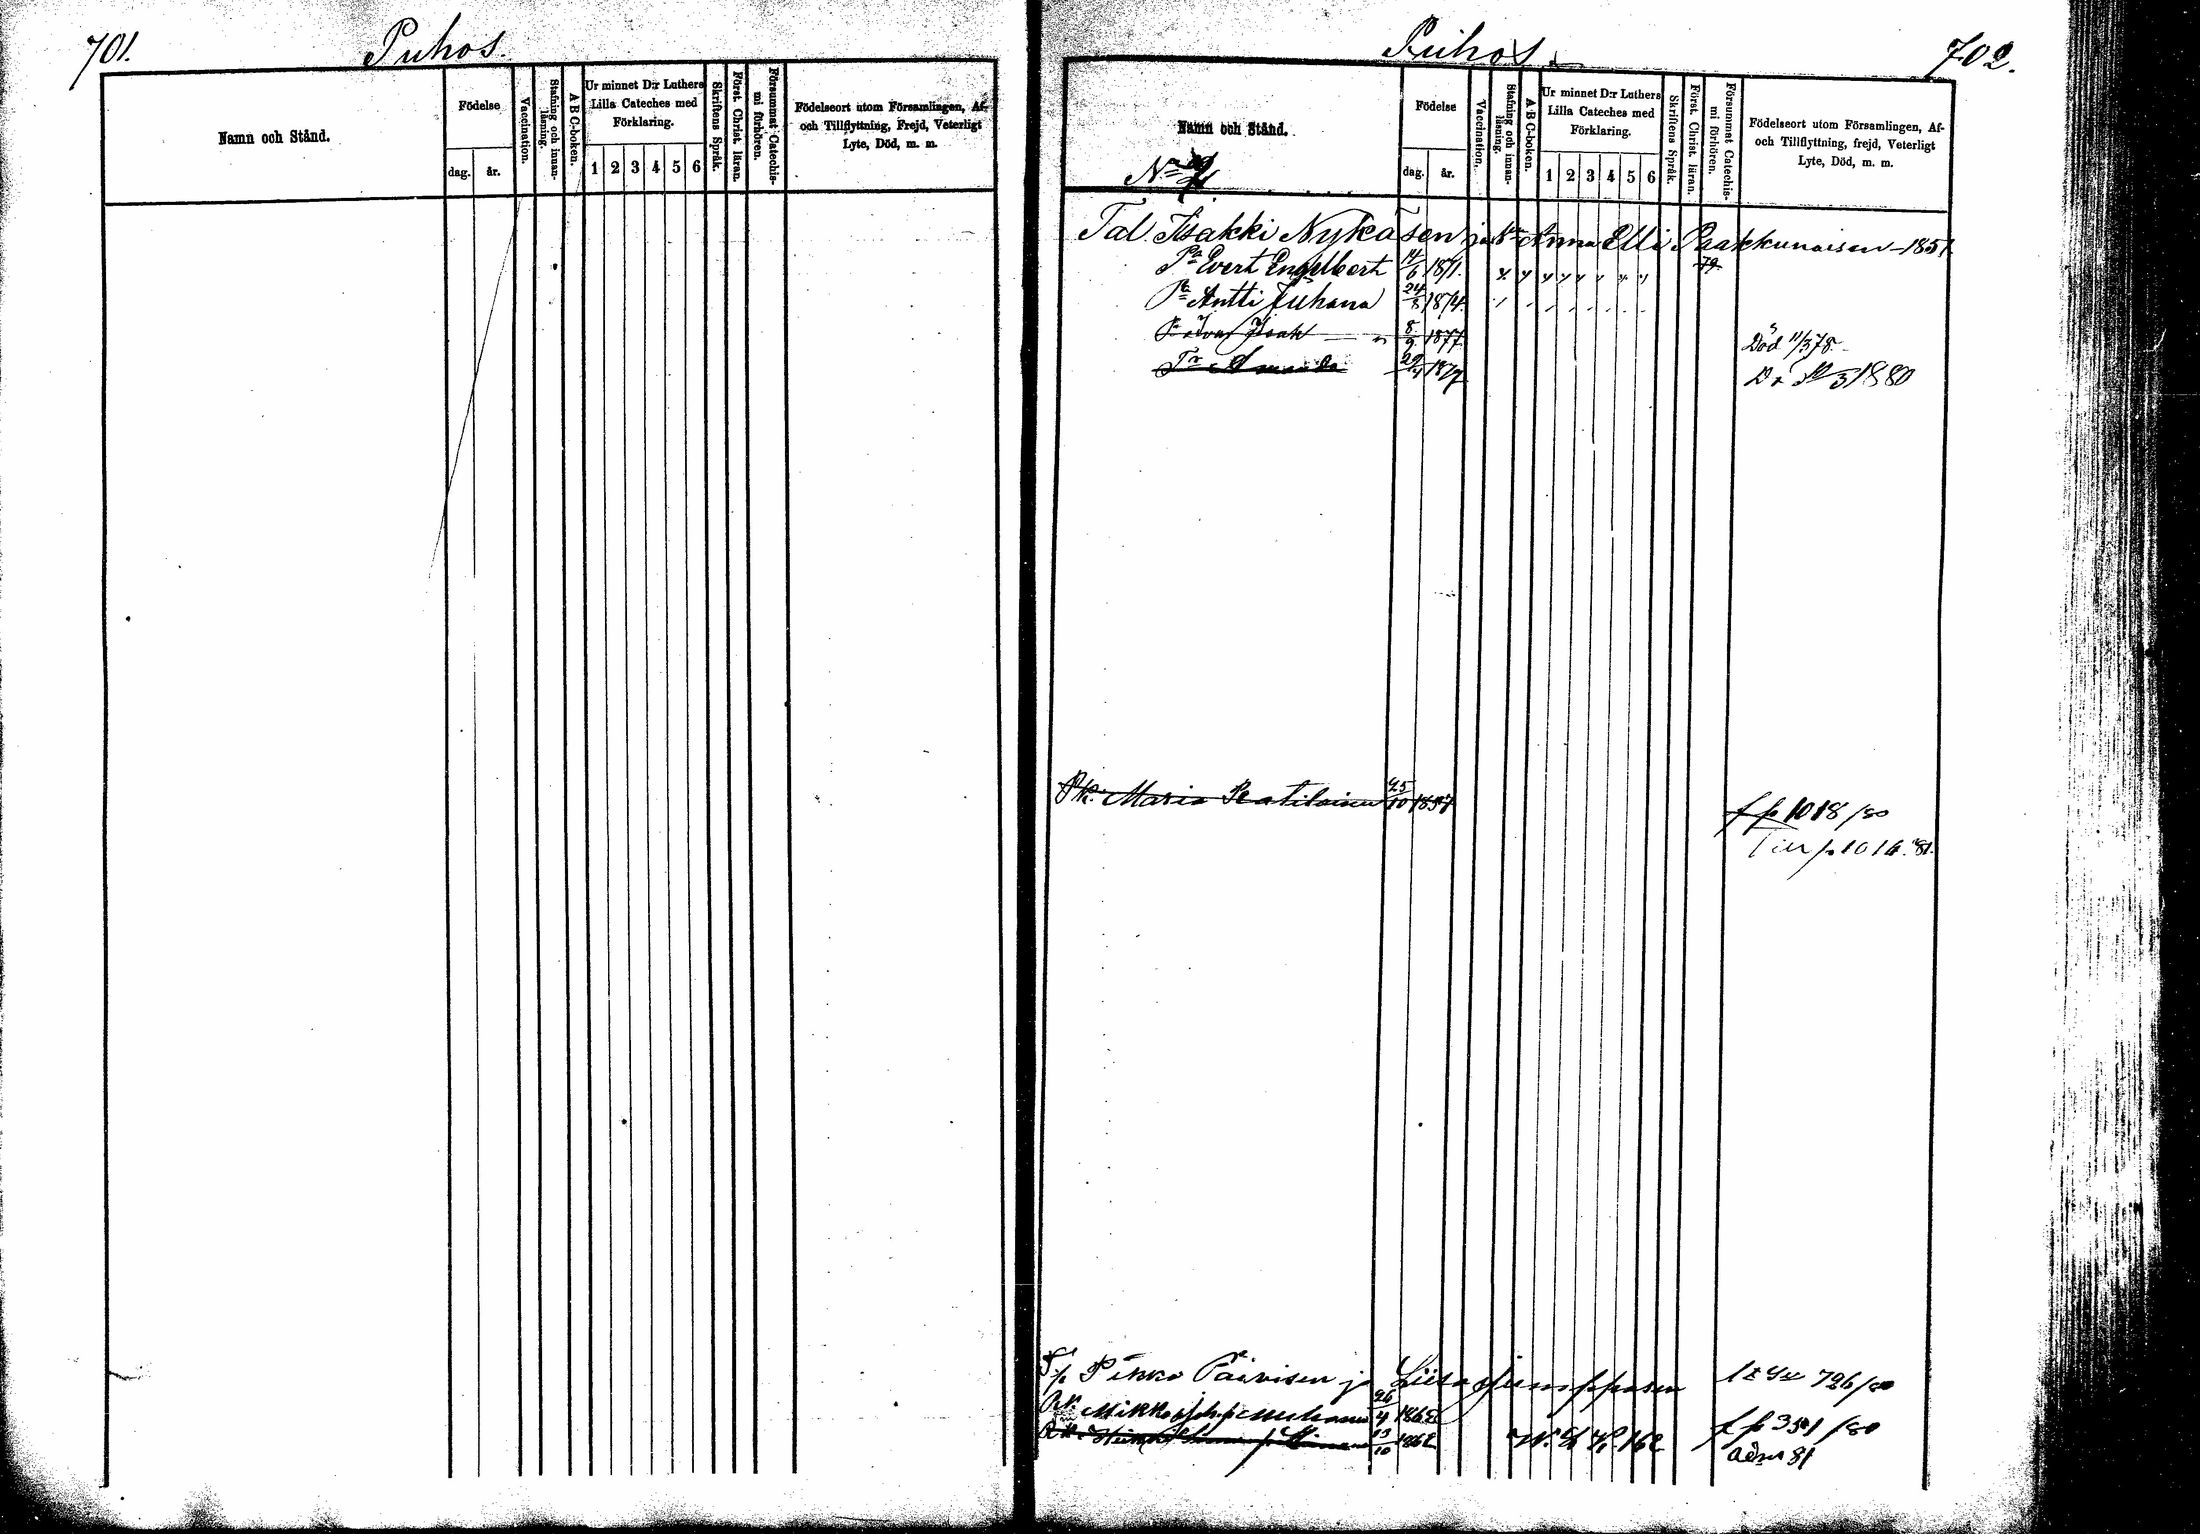 701. Puhos.
Namn och Stånd.
Födelse
dag. år.
Vaccination.
Stafning och innan-
läsning.
A B C-boken.
Ur minnet D:r Luthers
Lilla Cateches med
Förklaring.
1 2 3 4 5 6
Skriftens Språk.
Först. Christ. läran.
Försummat Catechis-
mi förhören.
Födelseort utom Församlingen, Af-
och Tillflyttning, Frejd, Veterligt
Lyte, Död, m. m.
Puhos. 702.
Namn och Stånd.
Födelse
dag. år.
Vaccination.
Stafning och innan-
läsning.
A B C-boken.
Ur minnet D:r Luthers
Lilla Cateches med
Förklaring.
1 2 3 4 5 6
Skriftens Språk.
Först. Christ. läran.
Försummat Catechis-
mi förhören.
Födelseort utom Församlingen, Af-
och Tillflyttning, frejd, Veterligt
Lyte, Död, m. m.
Tal. Iisakki Nykäsen ja Anna Elli Paakkunaisen 1851
Evert Engelbert 14/6 1871.
Antti Juhana 24/8 1874.
Isak 8/9 1877. Död 11/3 78.
Amanda 1879 1880
Pk. Maria 25/10 1857 fp 1018/80
Till p 1014. 81.
Päivisen ja Liisa 726/80
Mikko 26/4
13/10 1862 fp 351/80
81